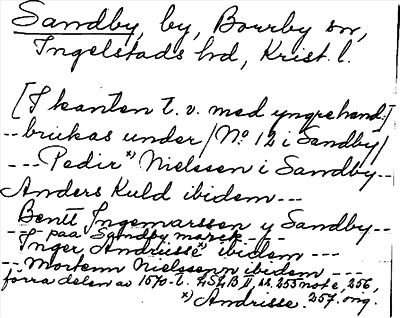 Sandby, by, Borrby sn,
Ingelstads hd, Krist. l.
[I kanten t. v. med yngre hand:]
-- brukas under / No 12 i Sandby /
--- Pedir x) Nielssen i Sandby --
Anders Kuld ibidem ---
Bentt Ingemarssen y Sandby --
-- J paa Sandby marck ---
Inger Andrusse x) ibidem ---
-- Mortenn Nielssenn ibidem ---
förra delen av 1570-t. II, 255 note, 256,
x) Andrisse. 257. orig.